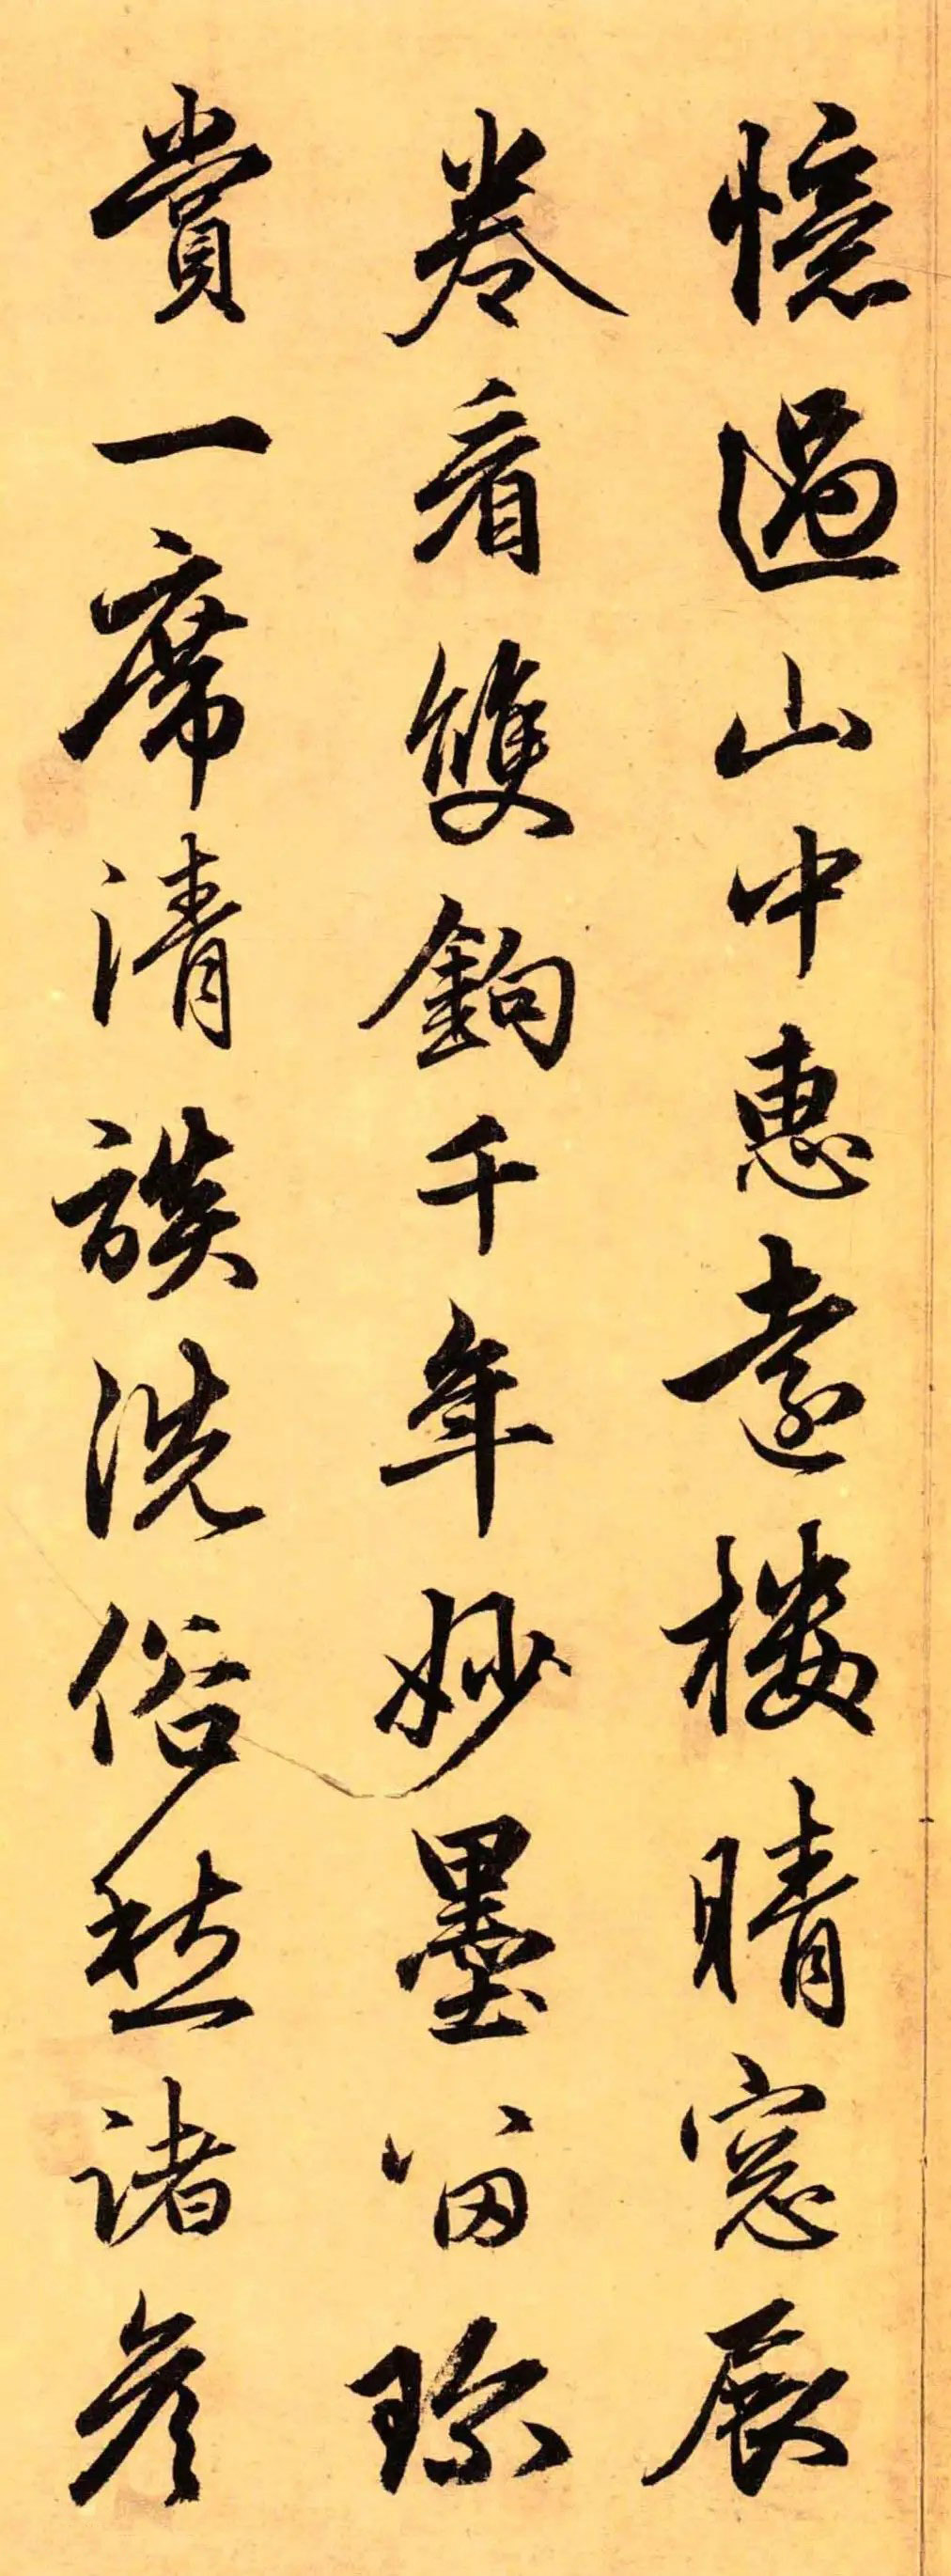 憶過山中惠遠樓晴窓展
卷看雙鉤千年妙墨留珎
賞一席清談洗俗愁諸彥